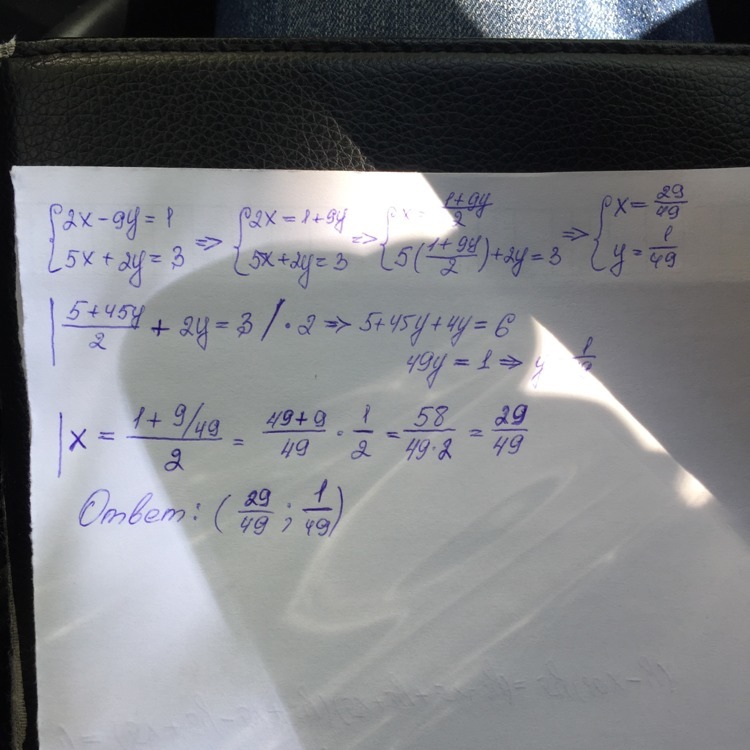 {2x - 9y = 1 => {2x = 1+9y => {x = 1+9y/2 => {x = 29/49
{5x + 2y = 3 {5x+2y = 3 {5(1+9y/2)+2y = 3 {y = 1/49
| 5+45y/2 + 2y = 3 / · 2 => 5+45y+4y = 6
49y = 1 => y
| x = 1+ 9/49 / 2 = 49+9/49 · 1/2 = 58/49·2 = 29/49
Ответ: (29/49 ; 1/49)